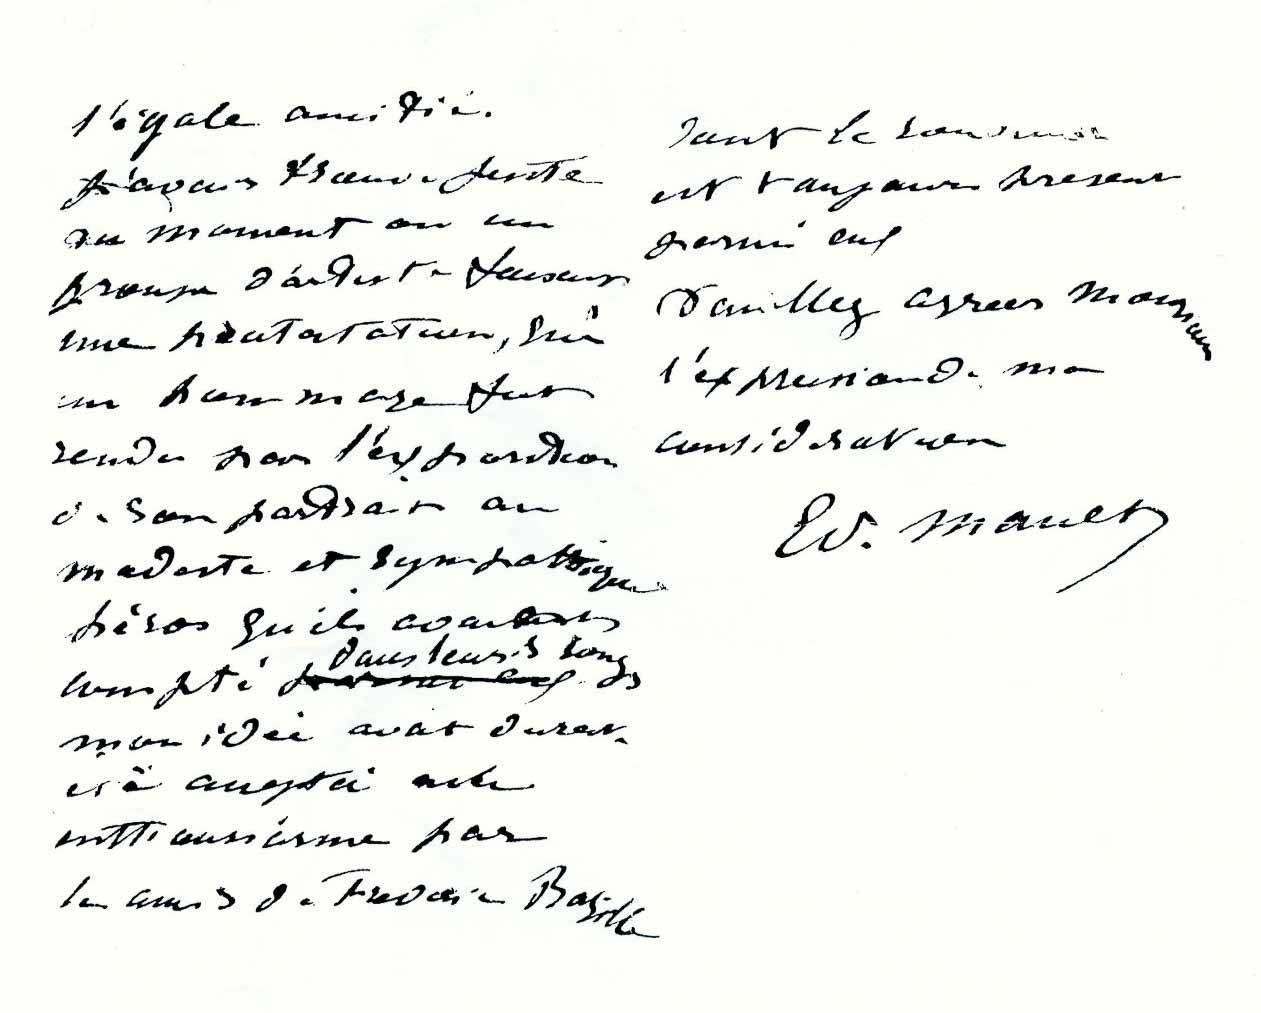 l'égale amitié.
j'avais trouvé juste
au moment ou un
groupe d'artiste faisait
une protestation, qu'
un hommage fut
rendu par l'exposition
de son portrait au
modeste et sympathique
héros qu'ils avaient
dans leurs rangs
compté parmi eux
mon idée avait
été accepté avec
enthousiasme par
les amis de Frederic Bazille
dont le souvenir
est toujours present
parmi eux
Veuillez agreer Monsieur
l'expression de ma
consideration
Ed. Manet